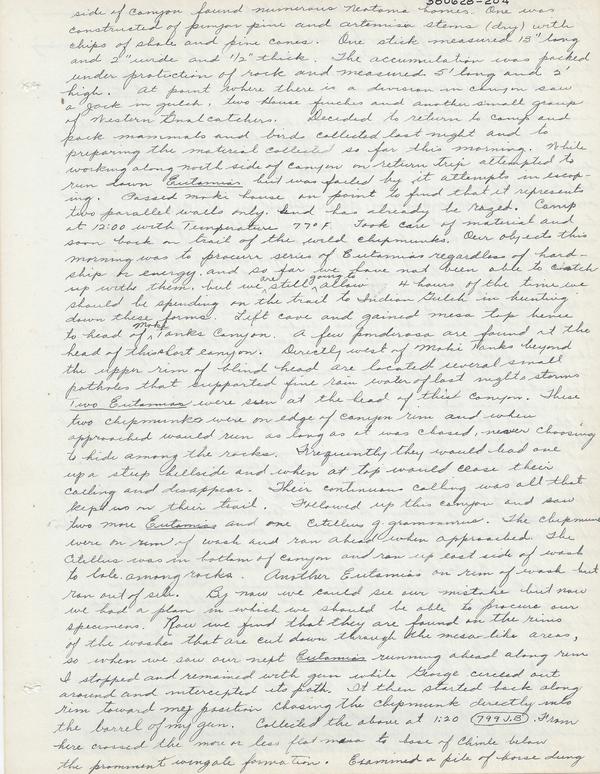 380628-204
side of canyon found numerous Neotoma homes. One was
constructed of pinyon pine and artemisa stems (dry) with
chips of shale and pine cones. One stick measured 13" long
and 2" wide and 1/2" thick. The accumulation was packed
under protection of rock and measured 5' long and 2'
high. At point where there is a division in canyon saw
a Jack in gulch, two House finches and another small group
of Western Gnatcatchers. Decided to return to camp and
pack mammals and birds collected last night and to
preparing the material collected so far this morning. While
working along north side of canyon on return trip attempted to
run down Eutamias but was foiled by it attempts in escap-
ing. Passed moki house on point to find that it represents
two parallel walls only. And has already be razed. Camp
at 12:00 with Temperature 77°F. Took care of material and
soon back on trail of the wild chipmunks. Our objects this
morning was to procure series of Eutamias regardless of hard-
ship or energy. and so far we have not been able to catch
up with them. but we are still going to allow 4 hours of the time we
should be spending on the trail to Indian Gulch in hunting
down these forms. Left cave and gained mesa top hence
to head of Moki Tanks Canyon. A few ponderosa are found at the
head of this short canyon. Directly west of Moki Tanks beyond
the upper rim of blind head are located several small
potholes that supported fine rain water of last nights storms
Two Eutamias were seen at the head of this canyon. These
two chipmunks were on edge of canyon rim and when
approached would run as long as it was chased, never choosing
to hide among the rocks. Frequently they would lead one
up a steep hillside and when at top would cease their
calling and disappear. Their continuous calling was all that
kept us on their trail. Followed up this canyon and saw
two more Eutamias and one Citellus g. grammurus. The chipmunk
were on rim of wash and ran ahead when approached. The
Citellus was in bottom of canyon and ran up east side of wash
to hole among rocks. Another Eutamias on rim of wash but
ran out of site. By now we could see our mistake but now
we had a plan in which we should be able to procure our
specimens. Now we find that they are found on the rims
of the washes that are cut down through the mesa-like areas,
so when we saw our next Eutamias running ahead along rim
I stopped and remained with gun while George circled out
around and intercepted its path. It then started back along
rim toward my position chasing the chipmunk directly into
the barrel of my gun. Collected the above at 1:20 (799 J.B.). From
here crossed the more or less flat mesa to base of Chinle below
the prominent wingate formation. Examined a pile of horse dung